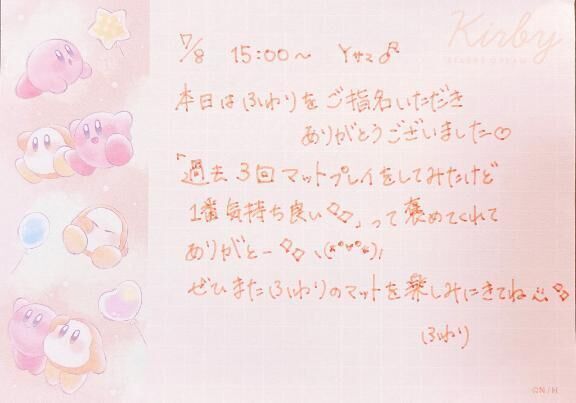 Kirby
7/8 15:00〜 Yサマ♂
本日はふわりをご指名いただき
ありがとうございました♡
「過去3回マットプレイをしてみたけど
1番気持ち良い」って褒めてくれて
ありがとー ヽ(*°∀°*)ﾉ
ぜひまたふわりのマットを楽しみにきてね
ふわり
©N/H